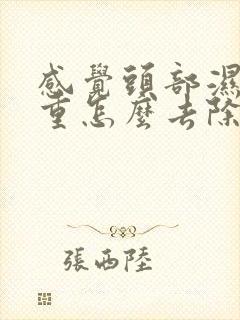 感覺頭部濕
重怎麼去除
張西陸